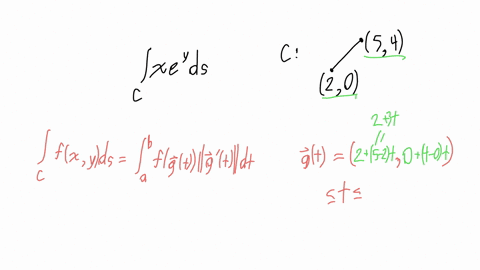 ∫_C xe^y ds
C:
(5,4)
(2,0)
2+3t
∫_C f(x,y)ds = ∫_a^b f(g⃗(t))‖g⃗'(t)‖dt
g⃗(t) = (2+(5-2)t, 0+(4-0)t)
≤ t ≤